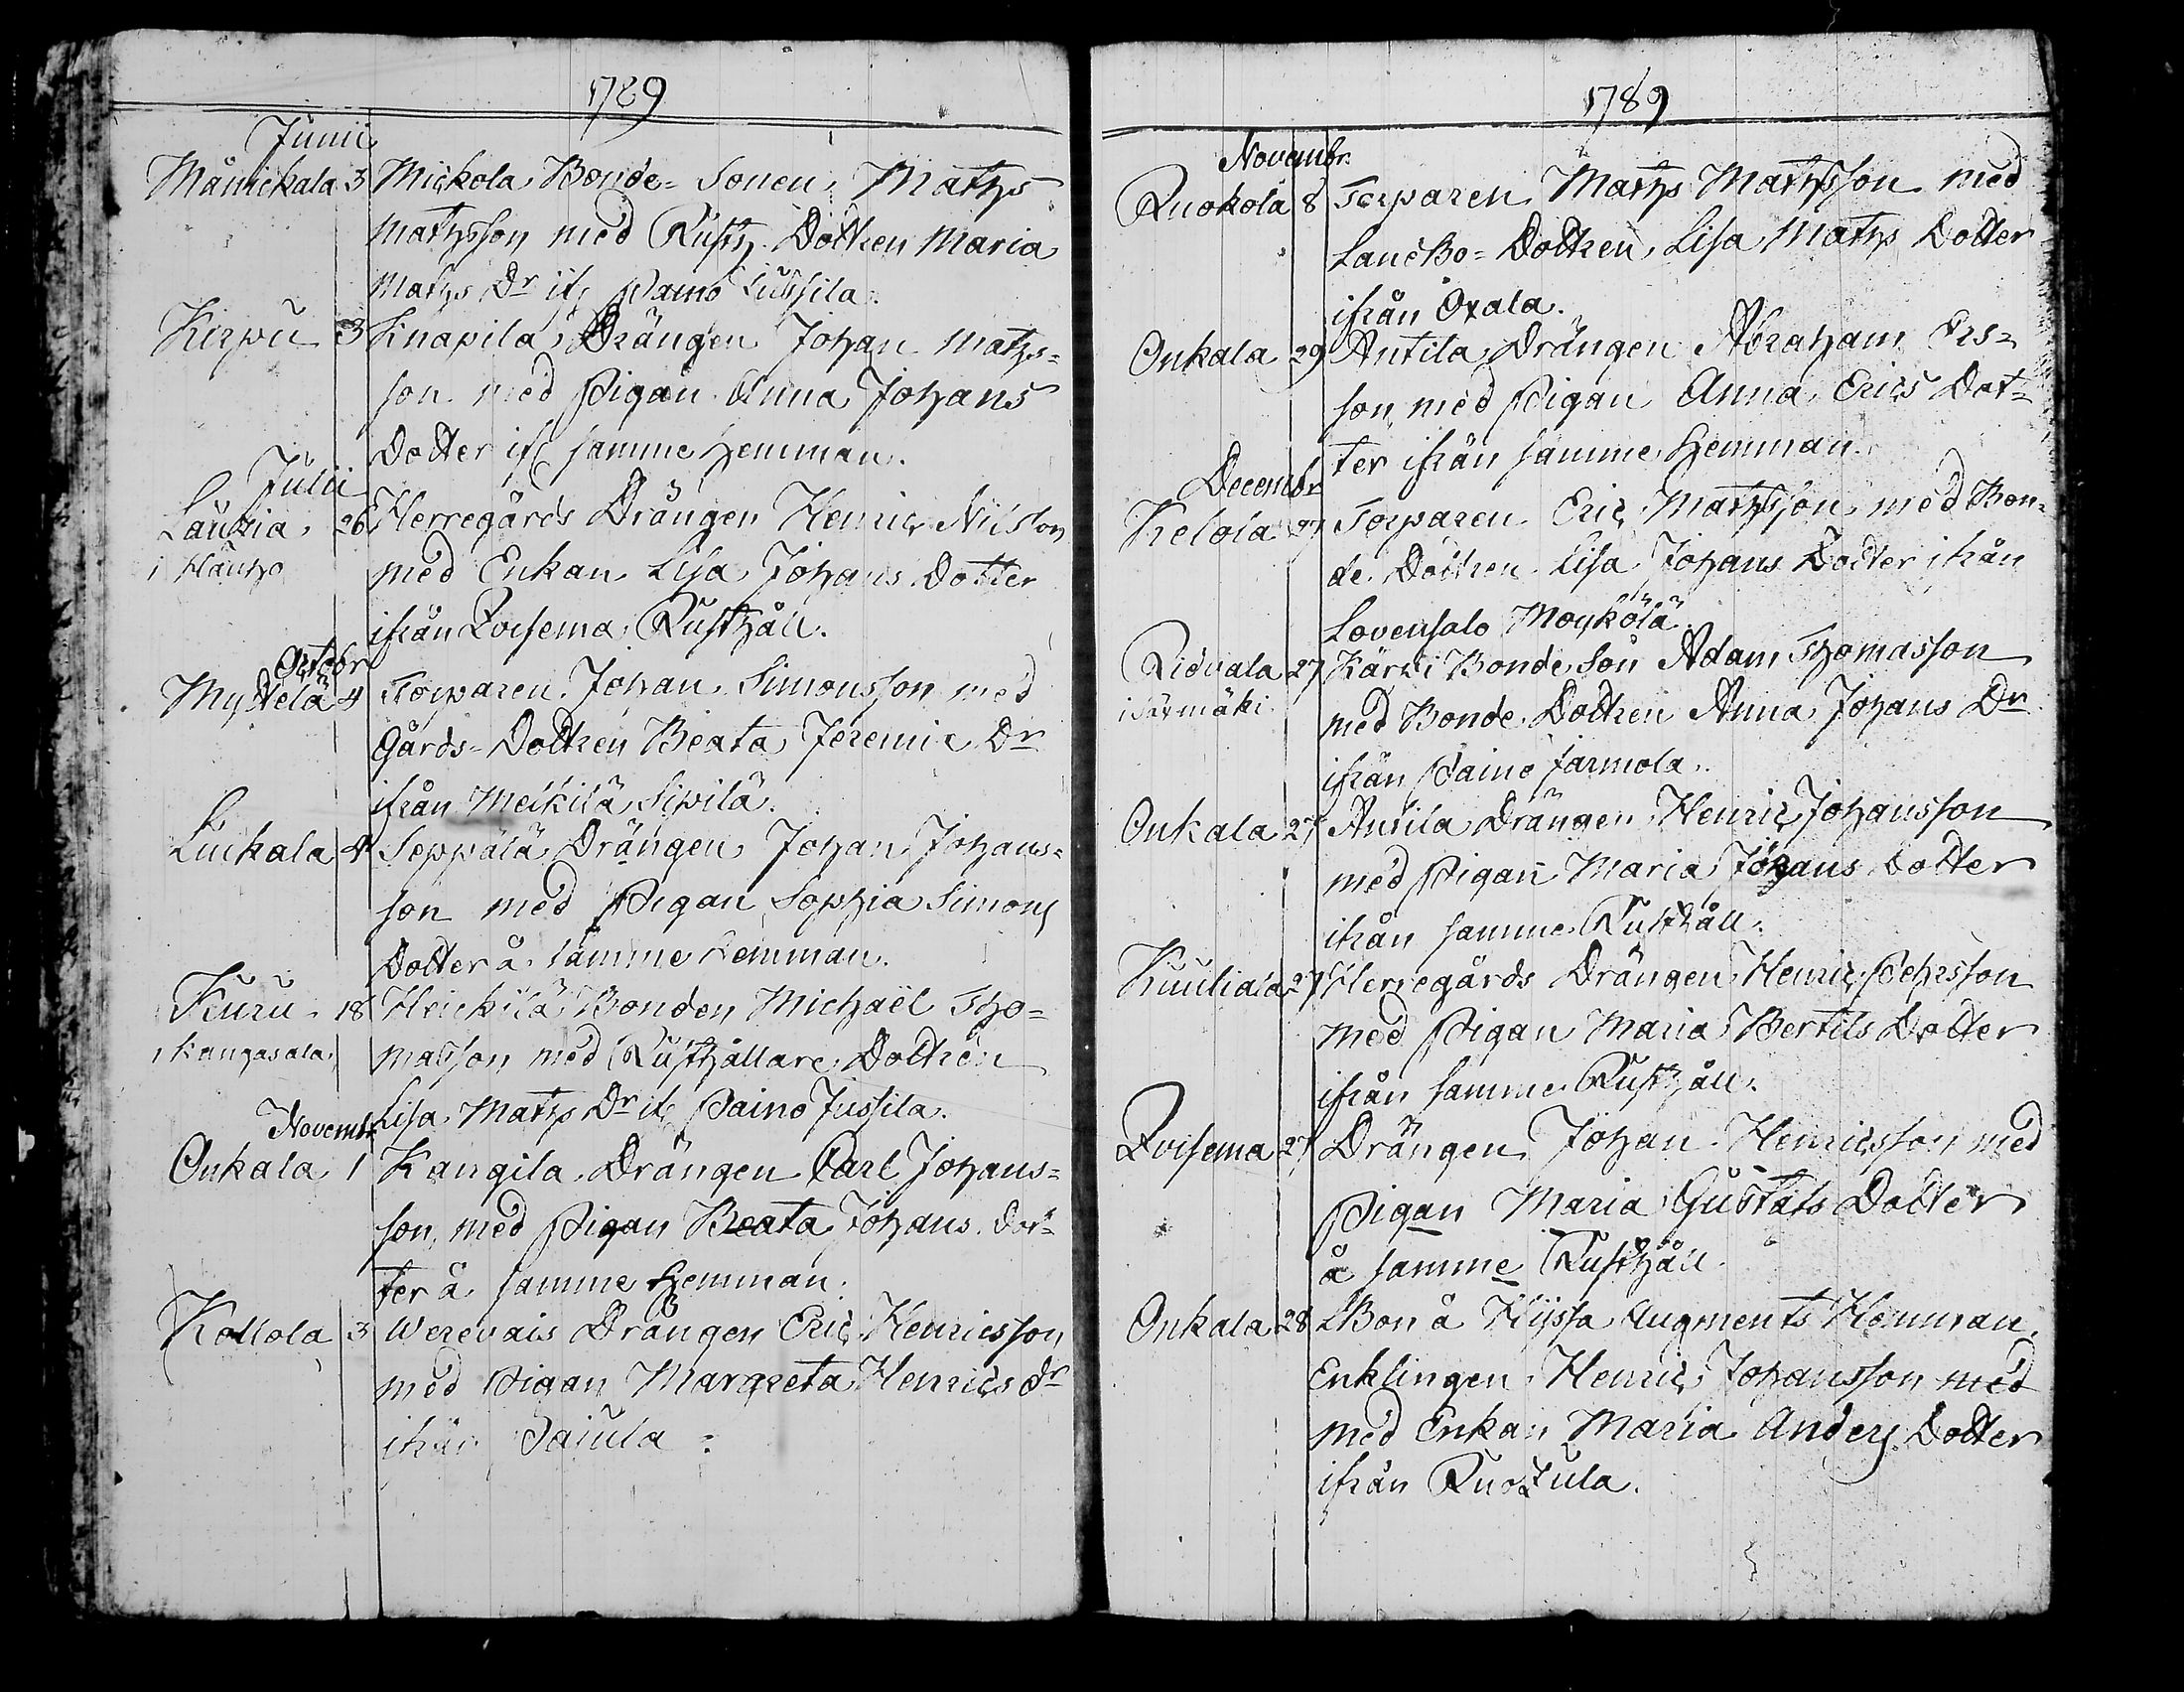 1789
Junii
Männickala 3 Mickola Bonde-Sonen Mathz
Mathzson med Rusth. Dottren Maria
Mathz Dr if. Paino Jussila.
Kirpu 3 Knapila Drängen Johan Mathz-
son med Pigan Anna Johans
Dotter ifr samme Hemman.
Julii
Lautzia 26 Herregårds Drängen Henric Nilsson
i Hauho med Enkan Lisa Johans Dotter
ifrån Zvisema Rusthåll.
Octobr
Myttelä 4 Torparen Johan Simonsson med
Gårds-Dottren Beata Jeremiæ Dr
ifrån Meckilä Sipilä.
Luckala 4 Seppälä Drängen Johan Johans-
son med Pigan Sophia Simons
Dotter å samme Hemman.
Kuru 18 Heickilä Bonden Michaël Tho-
i Kangasala masson med Rusthållare Dottren
Lisa Mathz Dr if. Paino Jussila.
Novembr
Onkala 1 Kangila Drängen Carl Johans-
son, med Pigan Beata Johans Dot-
ter å samme Hemman.
Kollola 3 Werevais Drängen Eric Henricsson
med Pigan Margreta Henrics dr
ifrån Sajula.
1789
Novembr.
Ruokola 8 Torparen Mathz Mathzson med
Landbo-Dottren Lisa Mathz Dotter
ifrån Oxala.
Onkala 29 Antila Drängen Abraham Ers-
son, med Pigan Anna Erics Dot-
ter ifrån samme Hemman.
Decembr
Kelola 27 Torparen Eric Mathzson med Bon-
de Dottren Lisa Johans Dotter ifrån
Lovensalo Moykölä.
Ridvala 27 Kärki Bonde Son Adam Thomasson
i Särmäki med Bonde Dottren Anna Johans Dr
ifrån Paino Jarmola.
Onkala 27 Antila Drängen Henric Johansson
med Pigan Maria Johans Dotter
ifrån samme Rusthåll.
Kuuliala 27 Herregårds Drängen Henric Pehrsson
med Pigan Maria Bertils Dotter
ifrån samme Rusthåll.
Zvisema 27 Drängen Johan Henricsson med
Pigan Maria Gustafs Dotter
å samme Rusthåll.
Onkala 28 LBon å Kyssa Augments Hemman
Enklingen Henric Johansson med
med Enkan Maria Anders Dotter
ifrån Ruokula.